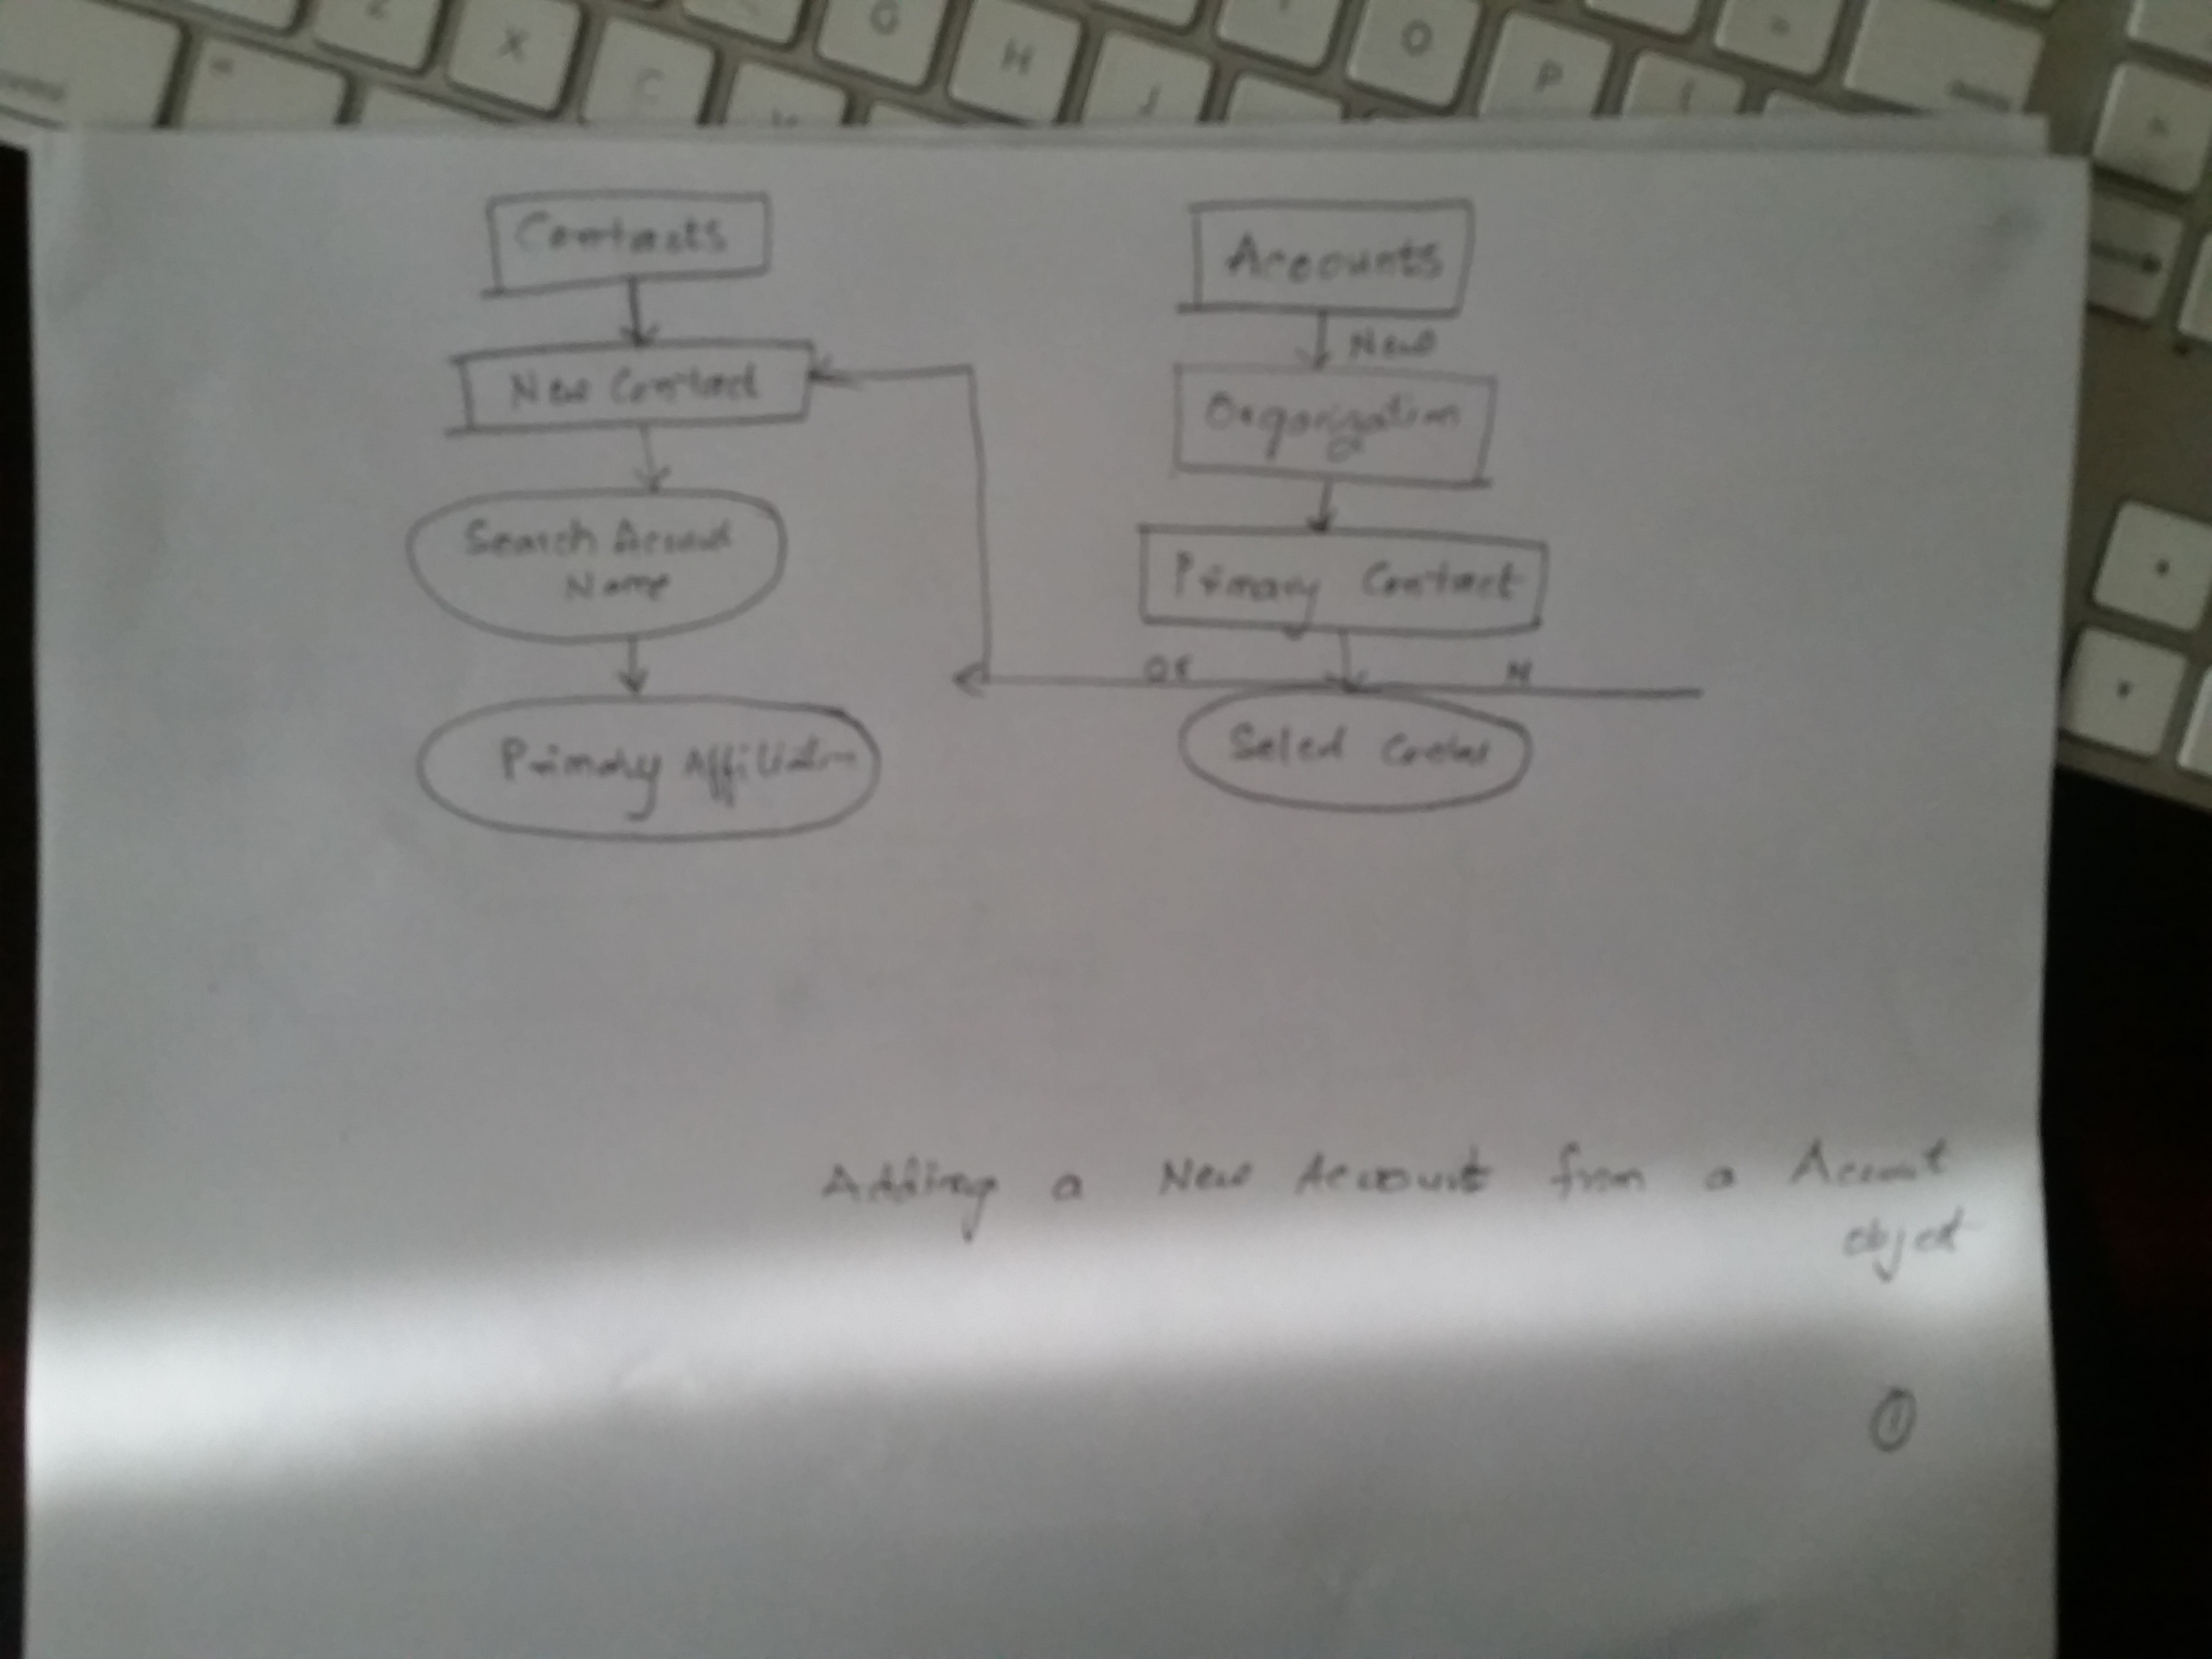 Contacts
New Contact
Search Account
Name
Primary Affiliation
Accounts
New
Organization
Primary Contact
OR
Select
Adding a New Account from a Account
object
1
Z
X
C
G
H
J
O
P